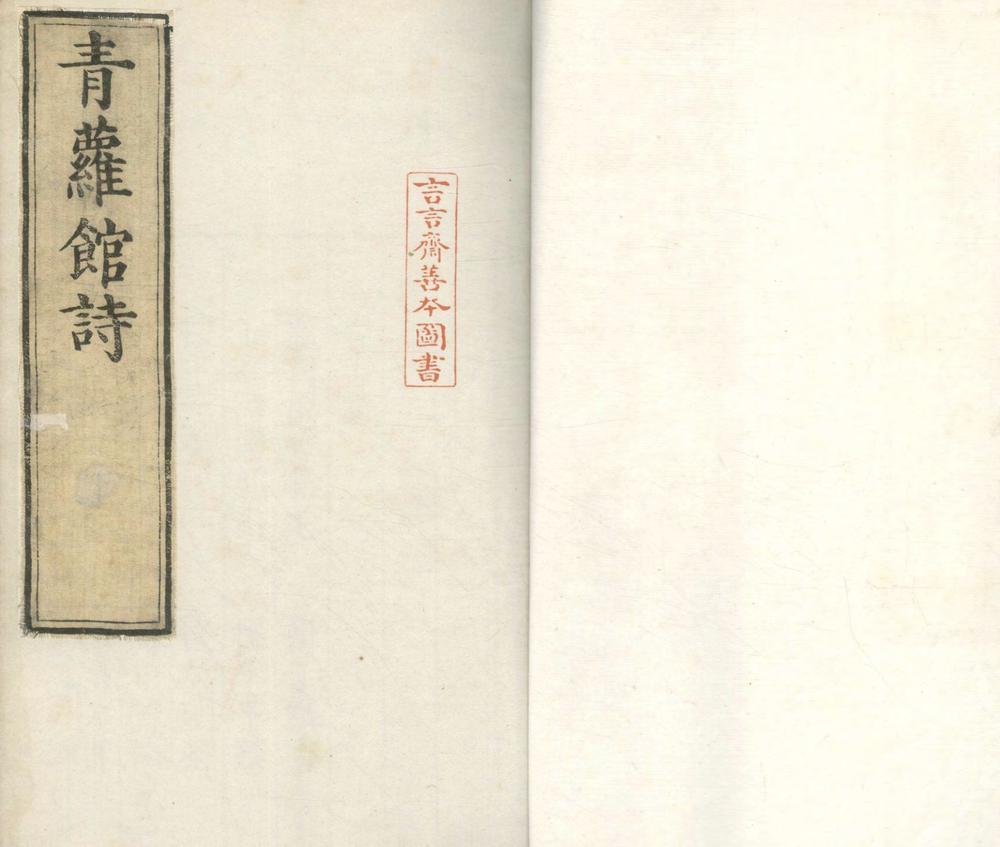 言言齋善本圖書
青蘿館詩